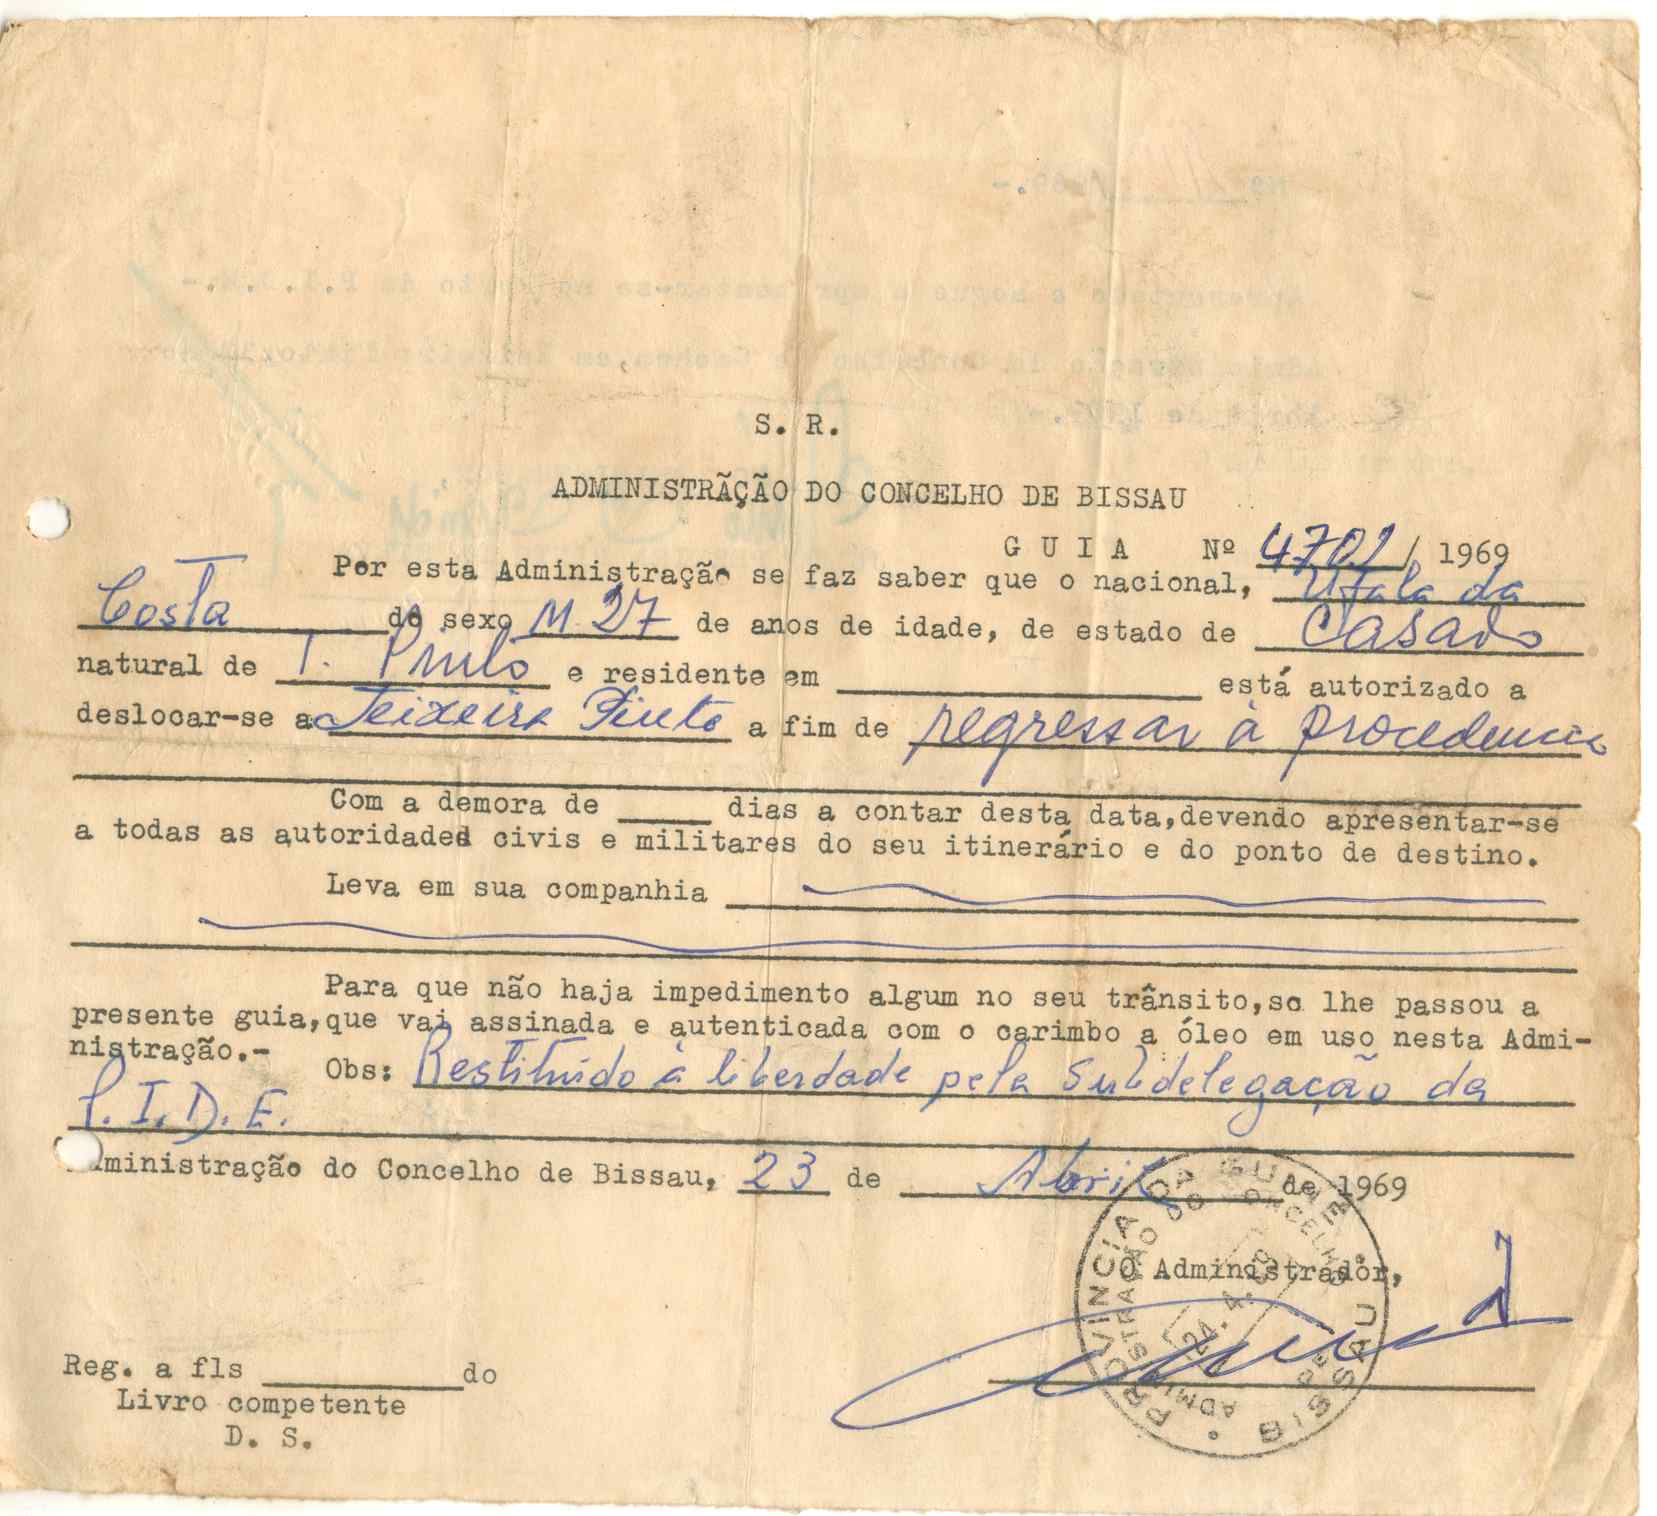 S. R.
ADMINISTRÃÇÃO DO CONCELHO DE BISSAU
G U I A Nº 4701/ 1969
Por esta Administração se faz saber que o nacional, Ufala da
Costa do sexo M 27 de anos de idade, de estado de Casado
natural de T. Pinto e residente em ______ está autorizado a
deslocar-se a Teixeira Pinto a fim de regressar à procedencia
Com a demora de ____ dias a contar desta data,devendo apresentar-se
a todas as autoridaded civis e militares do seu itinerário e do ponto de destino.
Leva em sua companhia ______
Para que não haja impedimento algum no seu trânsito,se lhe passou a
presente guia,que vai assinada e autenticada com o carimbo a óleo em uso nesta Admi-
nistração.-
Obs: Restituido à liberdade pela Subdelegação da
P.I.D.E.
Administração do Concelho de Bissau, 23 de Abril de 1969
O Administrador,
PROVINCIA DA GUINE
ADMINISTRAÇÃO DO CONCELHO DE
BISSAU
24. 4. 69
Reg. a fls ______ do
Livro competente
D. S.